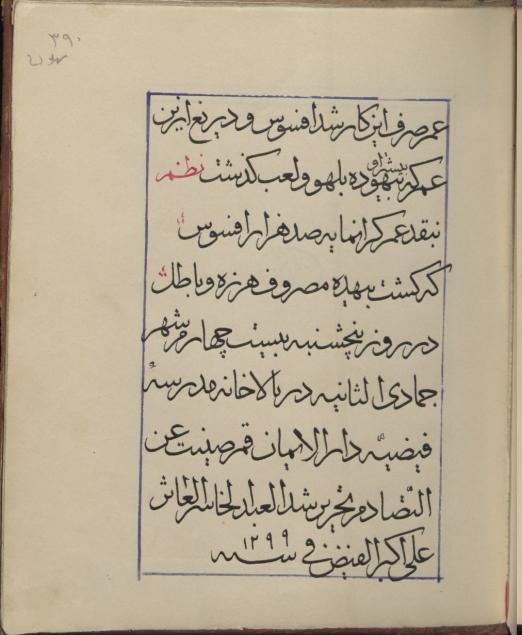 ۳۹۰
عمر صرف این کار شد افسوس و دریغ ازین
عمر که بیشتر او بیهوده بلهو و لعب کذشت نظم
نبقد عمر کرانمایه صد هزار افسوس
که کشت ببهده مصروف هرزه و باطل
در روز پنچشنبه بیست چهارم شهر
جمادی الثانیه در بالاخانه مدرسهٔ
فیضیه دار الایمان قم صینت عن
التصادم تحریر شد العبد الخاسر العاثر
علی اکبر الفیض فی سنه ۱۲۹۹